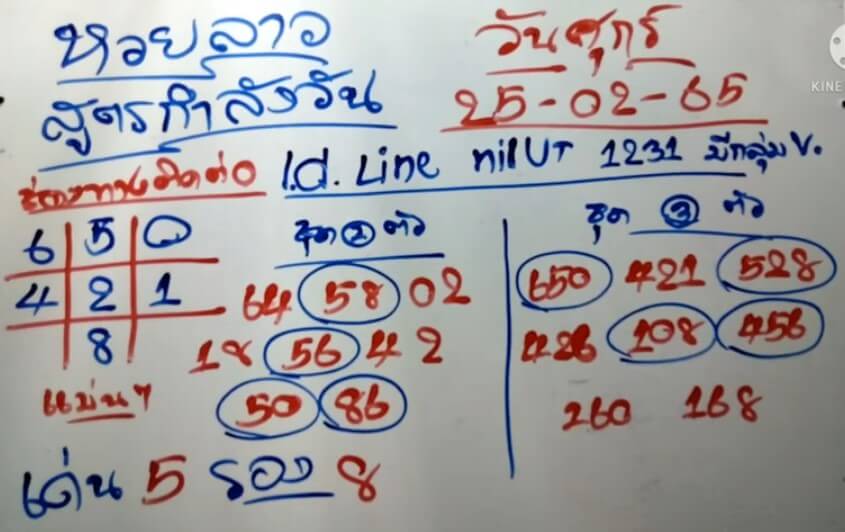 หวยลาว
วันศุกร์
สูตรกำลังวัน
25-02-65
ช่องทางติดต่อ I.d. Line nilUT 1231 มีกลุ่ม V.
6 5 0
4 2 1
8
แม่นๆ
ชุด 2 ตัว
64 58 02
18 56 42
50 86
ชุด 3 ตัว
650 421 528
426 108 456
260 168
เด่น 5 รอง 8
KINE